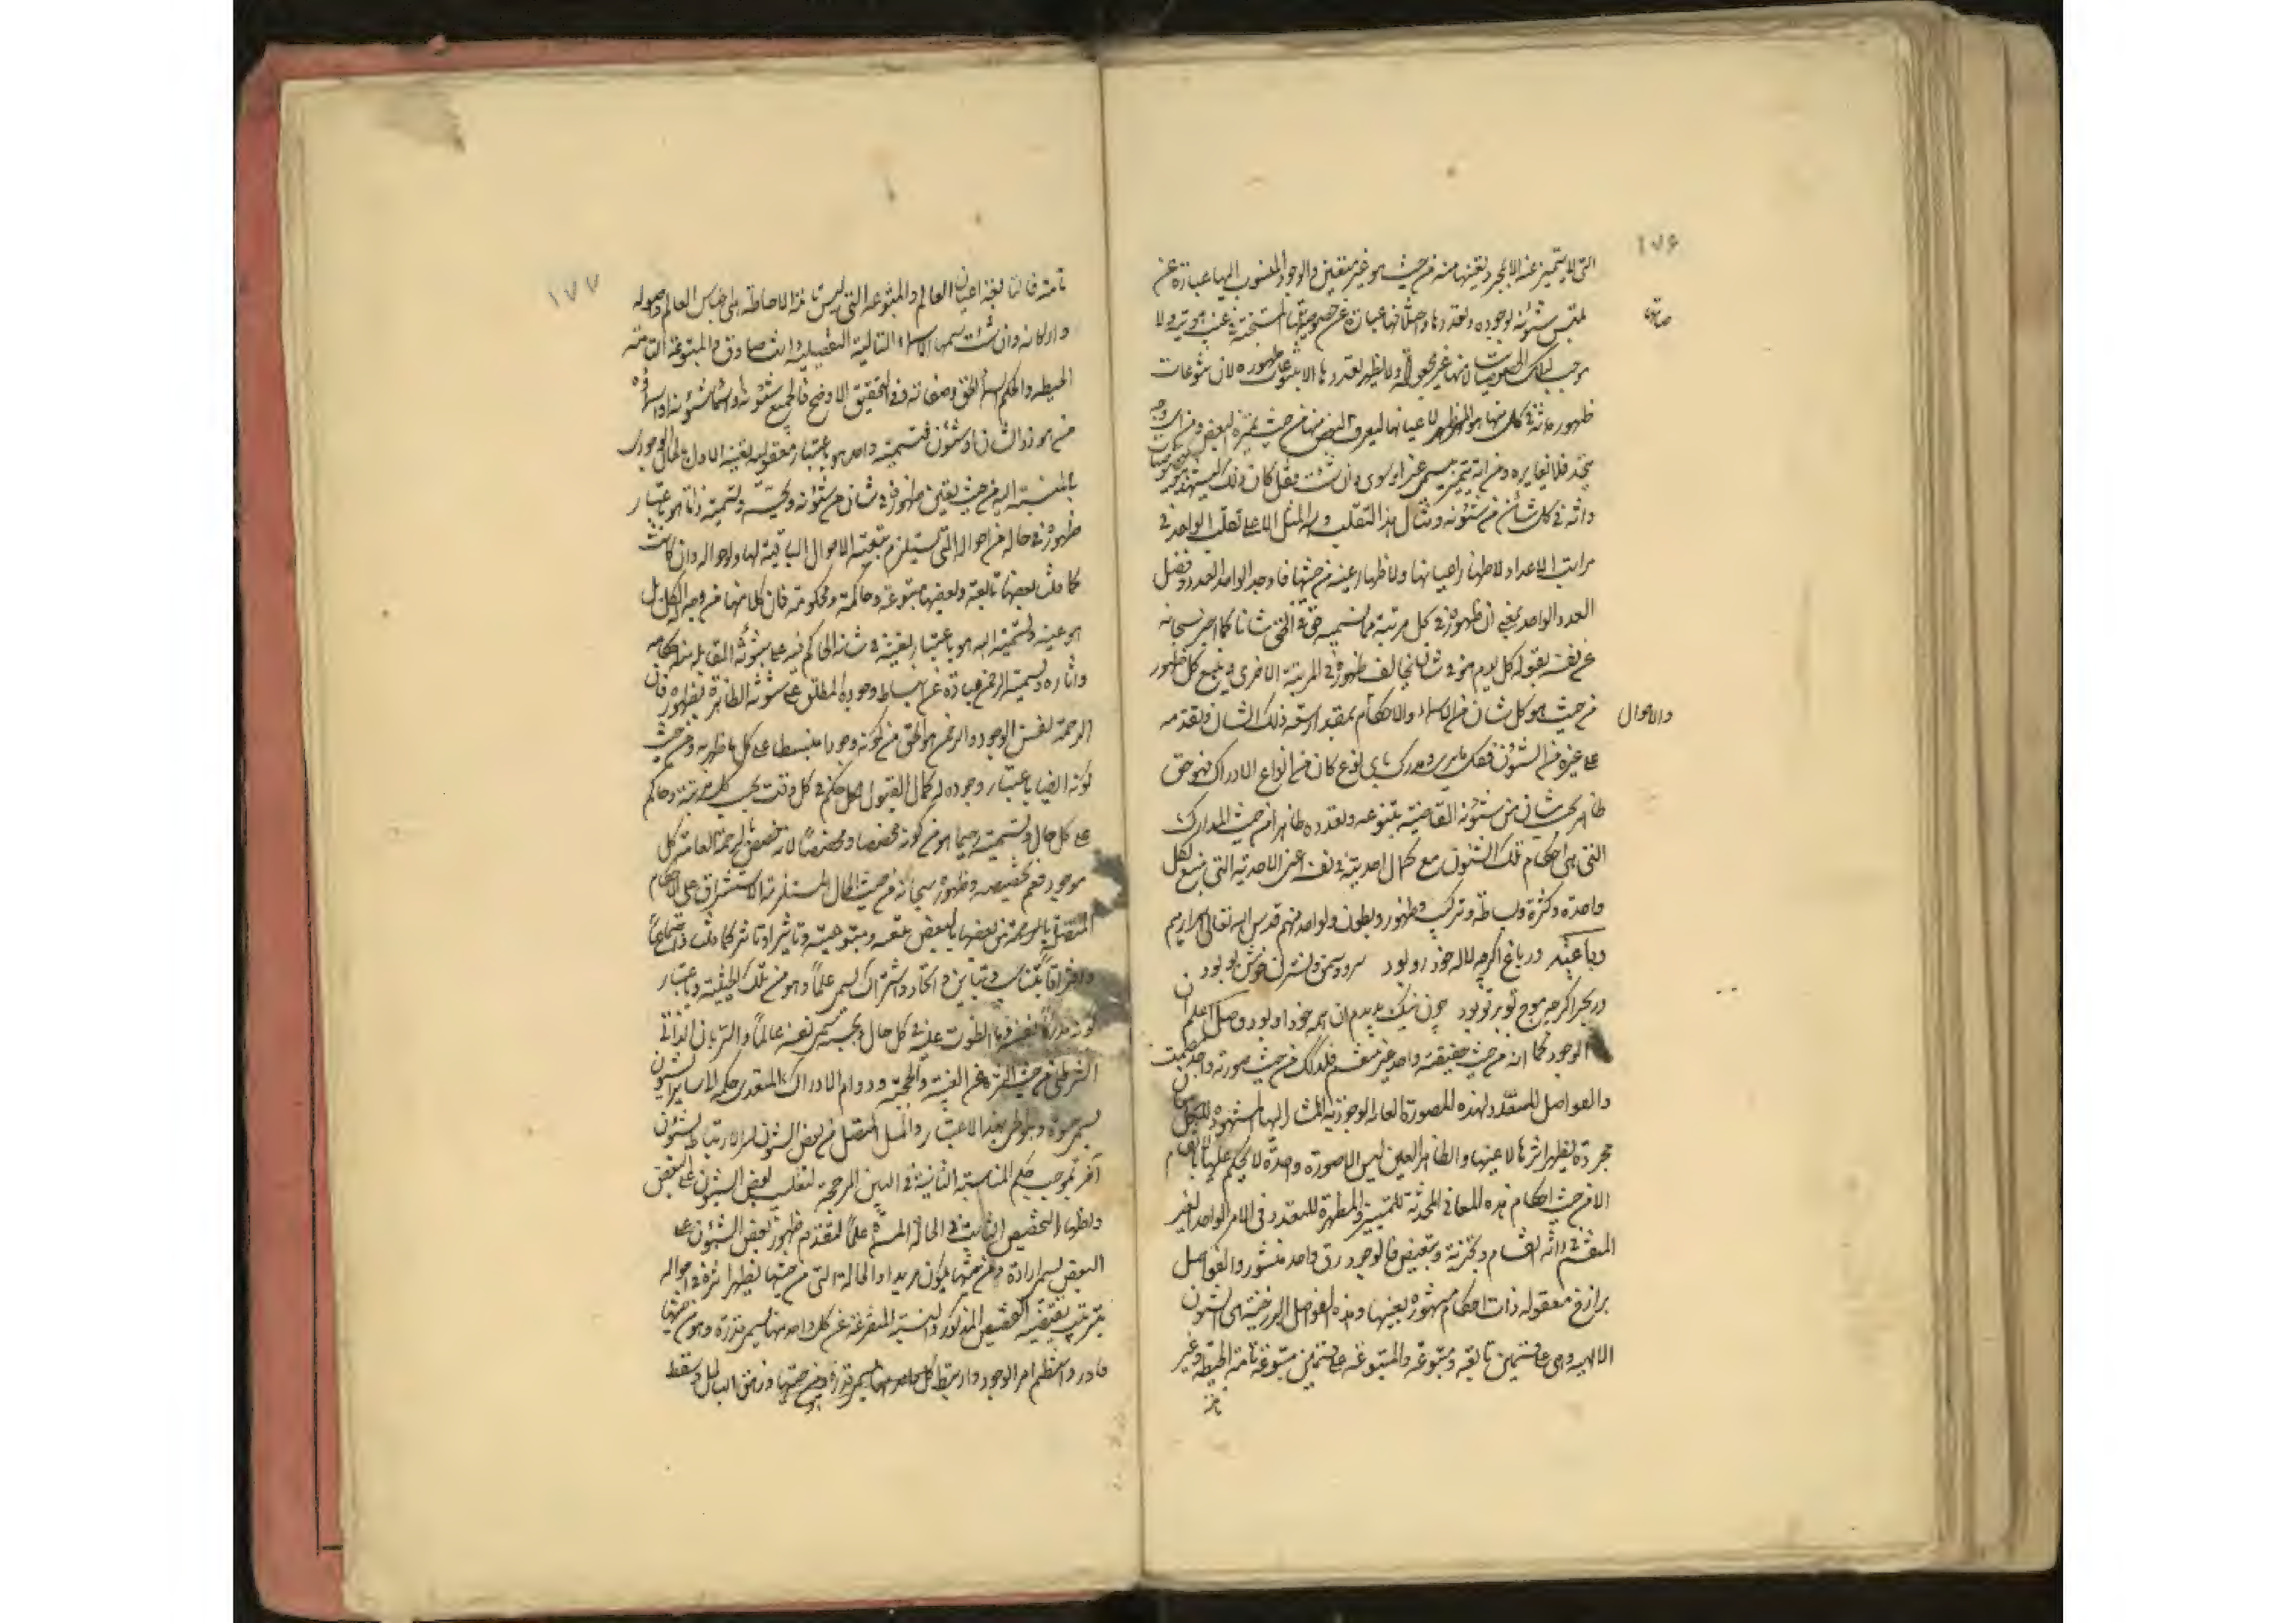 ١٧۶
التى لا يتميز عنه الا بمجرد تعينها منه من حيث هو غير متعين والوجود المنسوب اليها عبارة عن
تلبس شئونه بوجوده وتعددها واختلافها عبارة عن خصوصياتها المستجنة فى غيب هويته ولا
موجب لتلك الخصوصيات لانها غير مجعولة ولا يظهر تعددها الا بتنوعات ظهوره لان تنوعات
ظهوره فى كل منها هو المظهر لاعيانها ليعرف البعض منها من حيث تميزه البعض ومن اى وجه
يتحد فلا يغايره ومن اية يتميز يسمى غيرا وسوى وان شئت فقل كان ذلك ليشهد هو خصوصيات
ذاته فى كل شأن من شئونه ومثال هذا التقلب ولله المثل الاعلى تقلب الواحد فى
مراتب الاعداد لاظهار اعيانها ولاظهار عينه من حيثها فاوجد الواحد العدد وفصل
العدد الواحد بمعنى ان ظهوره فى كل مرتبة مما نسميه فى حق الحق شانا كما اخبر سبحانه
عن نفسه بقوله كل يوم هو فى شأن يخالف ظهوره فى المرتبة الاخرى ويتبع كل ظهور
من حيث هو كل شان من الاسماء والاحكام بمقدار سعة ذلك الشان وتقدمه
والاحوال
على غيره من الشئون فكل ما يرى ويدرك باى نوع كان من انواع الادراك فهو حق
ظاهر بحسب شان من شئونه القاضية بتنوعه وتعدده ظاهرا من حيث المدارك
التى هى احكام تلك الشئون مع كمال احديته فى نفسه اعنى الاحدية التى هى منبع لكل
واحدة وكثرة وبساطة وتركيب وظهور وبطون ولواحد منهم قدس الله تعالى اسرارهم
رباعيه در باغ اكرچه لاله خودرو بود سرو وسمن ونسترن خوش بو بود
در بحر اكرچه موج تو بر تو بود چون نيك بديدم آن همه خود او بود وصل اعلم ان
الوجود كما انه من حيث حقيقته واحد غير منقسم فكذلك من حيث صورته واحد مصمت
والفواصل المتعددة لهذه الصورة العامة الوجودية المشار اليها المشهودة للكل معان
مجردة يظهر اثرها لا عينها والظاهر العين ليس الا صورة واحدة لا يحكم عليها بالانقسام
الا من حيث احكام هذه المعانى المحدثة للتمييز والمظهرة للتعدد فى الامر الواحد الغير
المنقسم فى ذاته انقسام وتجزئة وتبعيض فالوجود رق واحد منشور والفواصل
برازخ معقوله ذات احكام مشهوده بعينها وهذه الفواصل البرزخية هى الشئون
الالهية وهى على قسمين تابعه ومتبوعة والمتبوعة على قسمين متبوعة تامة الحيطة وغير
تامة
١٧٧
تامة فالتابعة اعيان العالم والمتبوعة التى ليس تامة الاحاطة هى اجناس العالم واصوله
واركانه وان شئت سمها الاسماء التالية التفصيلية وانت صادق والمتبوعة التامة
الحيطة والحكم اسماء الحق وصفاته وفى التحقيق الاوضح فالجميع شئونه واسماء شئونه واسماؤه
من هو ذو الشان او شئون فتسميته واحد هو باعتبار معقولية تعينه الاول بالحال الوجودى
بالنسبة اليه من حيث تعين ظهوره فى شان من شئونه وبحسبه وتسميته ذاتا هو باعتبار
ظهوره فى حالة من احواله التى تستلزم تبعية الاحوال الباقية لها ولاحواله وان كانت
كما قلت بعضها تابعة وبعضها متبوعة وحاكمة ومحكومة فان كلا منها من وجه الكل بل
هو عينه وتسميته الله هو باعتبار تعينه فى شانه الحاكم فيه على شئونه القابلة منه احكامه
واثاره وتسميته الرحمن عبارة عن انبساط وجوده المطلق على شئونه الظاهرة بظهوره فان
الرحمة نفس الوجود والرحمن هو الحق من كونه وجودا منبسطا على كل ما ظهر به ومن حيث
كونه ايضا باعتبار وجوده له كمال القبول لكل حكم فى كل وقت بحسب كل مرتبة وحاكم
على كل حال وتسميته رحيما هو من كونه مخصصا ومخصصا لانه خصص بالرحمة العامة كل
موجود فعم تخصيصه وظهوره سبحانه من حيث الحال المستلزمة الاستشراق على الاحكام
المتصل بالرحمة من بعضها بالبعض تبعية ومتبوعية وتاثيرا وتاثرا كما قلت واجتماعا
وافتراقا بتناسب وتباين واتحاد واشتراك يسمى علما وهو من تلك الحيثية وباعتبار
كونه مدركا نفسه وما انطوت عليه فى كل حال وبحسبه يسمى نفسه عالما والسريان الذاتى
الشرطى من حيث التنزه عن الغيبة والحجبة ودوام الادراك المتعدى حكمه الى ساير الشئون
يسمى حيوة وهو الحى بهذا الاعتبار والميل المتصل من بعض الشئون لامر الارتباط بشئون
آخر بموجب حكم المناسبة الثابتة فى البين المرجحة لتغليب بعض الشئون على البعض
واظهار التخصيص الثابت فى الحالة المسماة علما لتقدم ظهور بعض الشئون على
البعض يسمى ارادة وهو من حيثها يكون مريدا والحالة التى من حيثها يظهر اثره فى احواله
بترتيب يقتضيه التخصيص المذكور والنسبة المتفرعة عن كل واحد منها يسمى قدرة وهو من حيثها
قادر وانتظم امر الوجود وارتبط كل واحد منها فزهق الباطل وسقط